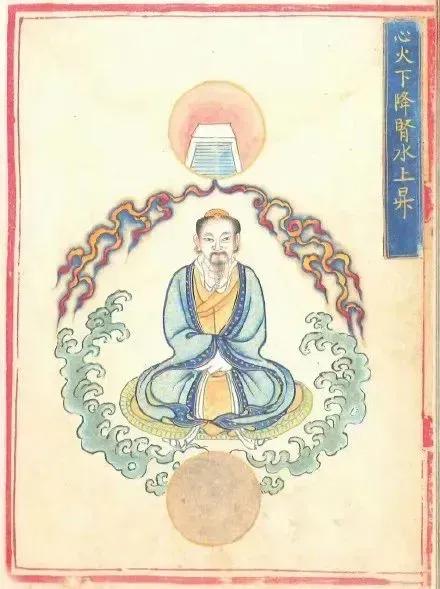 心火下降腎水上昇